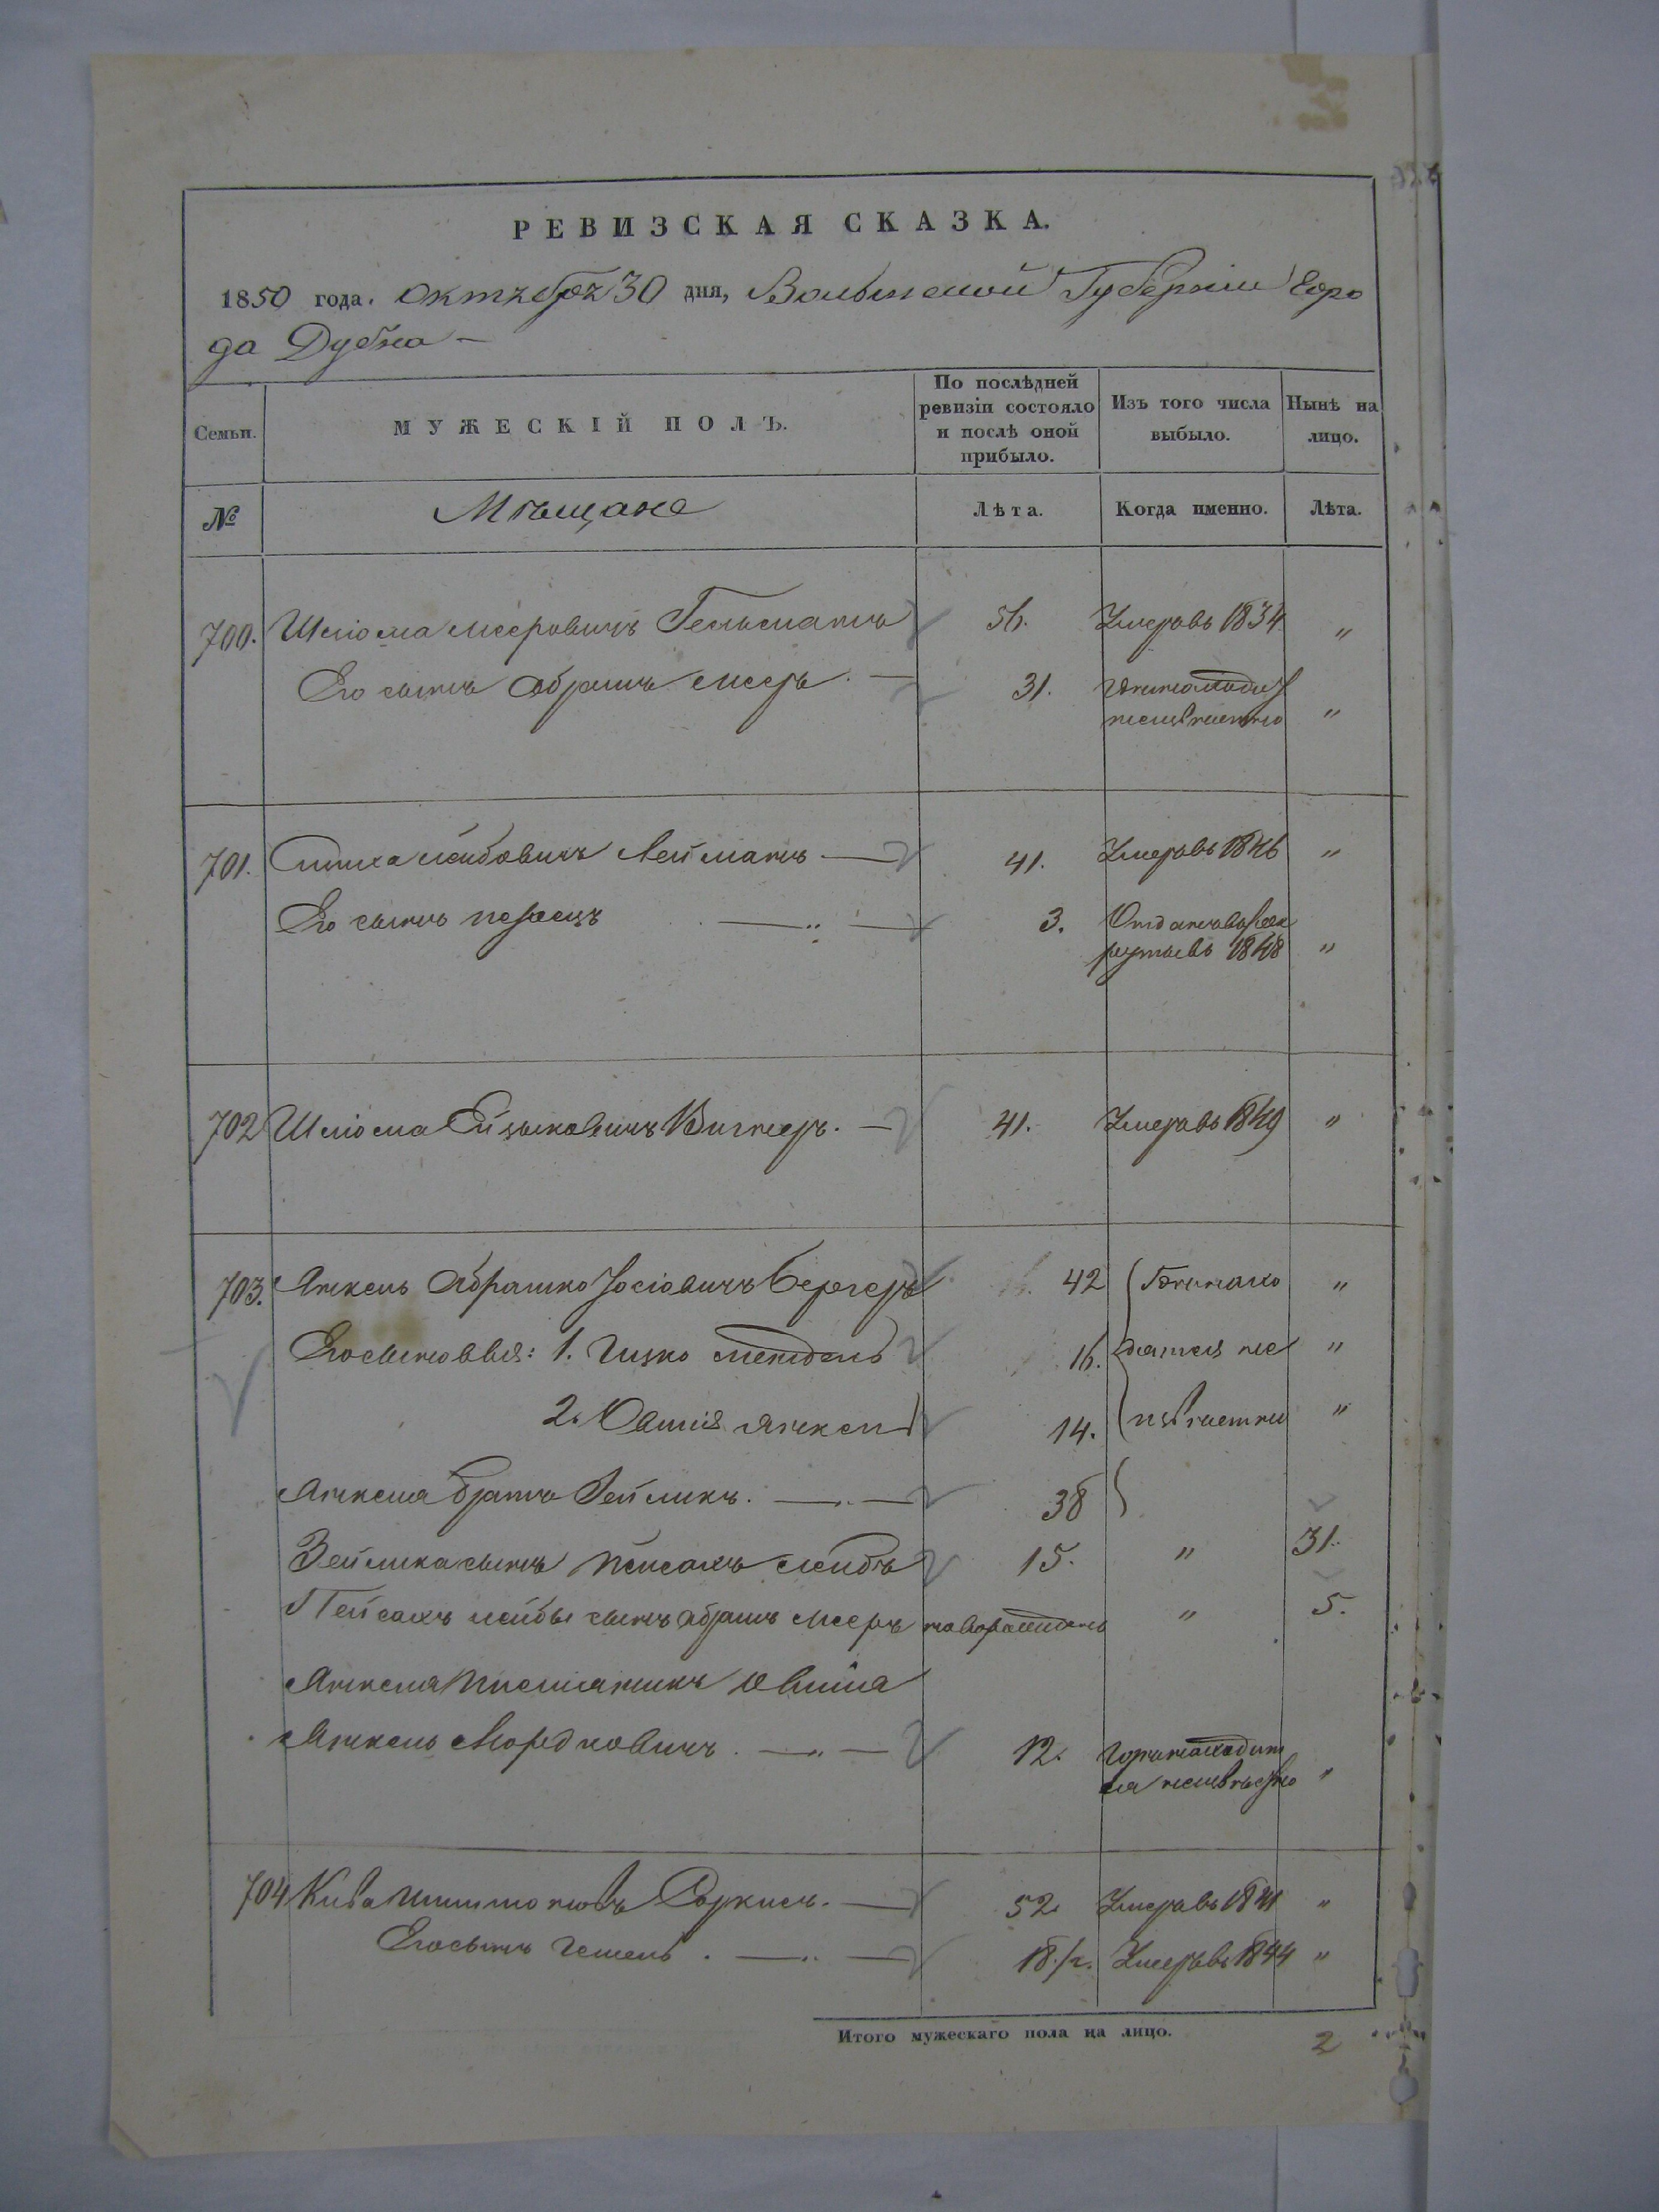 РЕВИЗСКАЯ СКАЗКА.
1850 года. Октября 30 дня, Волынской Губерніи Горо
да Дубна —
Семьи.
МУЖЕСКІЙ ПОЛЪ.
По послѣдней
ревизіи состояло
и послѣ оной
прибыло.
Изъ того числа
выбыло.
Нынѣ на
лицо.
№
Мѣщане
Лѣта.
Когда именно.
Лѣта.
700. Шліома Мееровичъ Гельманъ 56. Умеръ въ 1834 "
Его сынъ Абрамъ Мееръ. — 31.
неизвѣстно "
701. Лейбовичъ — 41. Умеръ въ 1846 "
Его сынъ — " — 3. Отданъ въ рек
руты въ 1848 "
702 Шліома Ейзыковичъ Вигнеръ. — 41. Умеръ въ 1849 "
703. Янкель Абрамко Іосіовичъ Бергеръ 42 "
Его сыновья: 1. Гицко Мендель 16. дятся не "
2. Овшія Янкель 14. извѣстно "
Янкеля братъ Зейликъ. — " — 38
Зейлика сынъ Пейсахъ Лейбъ 15. " 31.
Пейсахъ Лейбы сынъ Абрамъ Мееръ новорожденъ " 5.
Янкеля племянникъ Овшія
Янкель Мордковичъ. — " — 12.
ся неизвѣстно "
704 Кива — 52. Умеръ въ 1841 "
Его сынъ — " — 18./2. Умеръ въ 1844 "
Итого мужескаго пола на лицо. 2